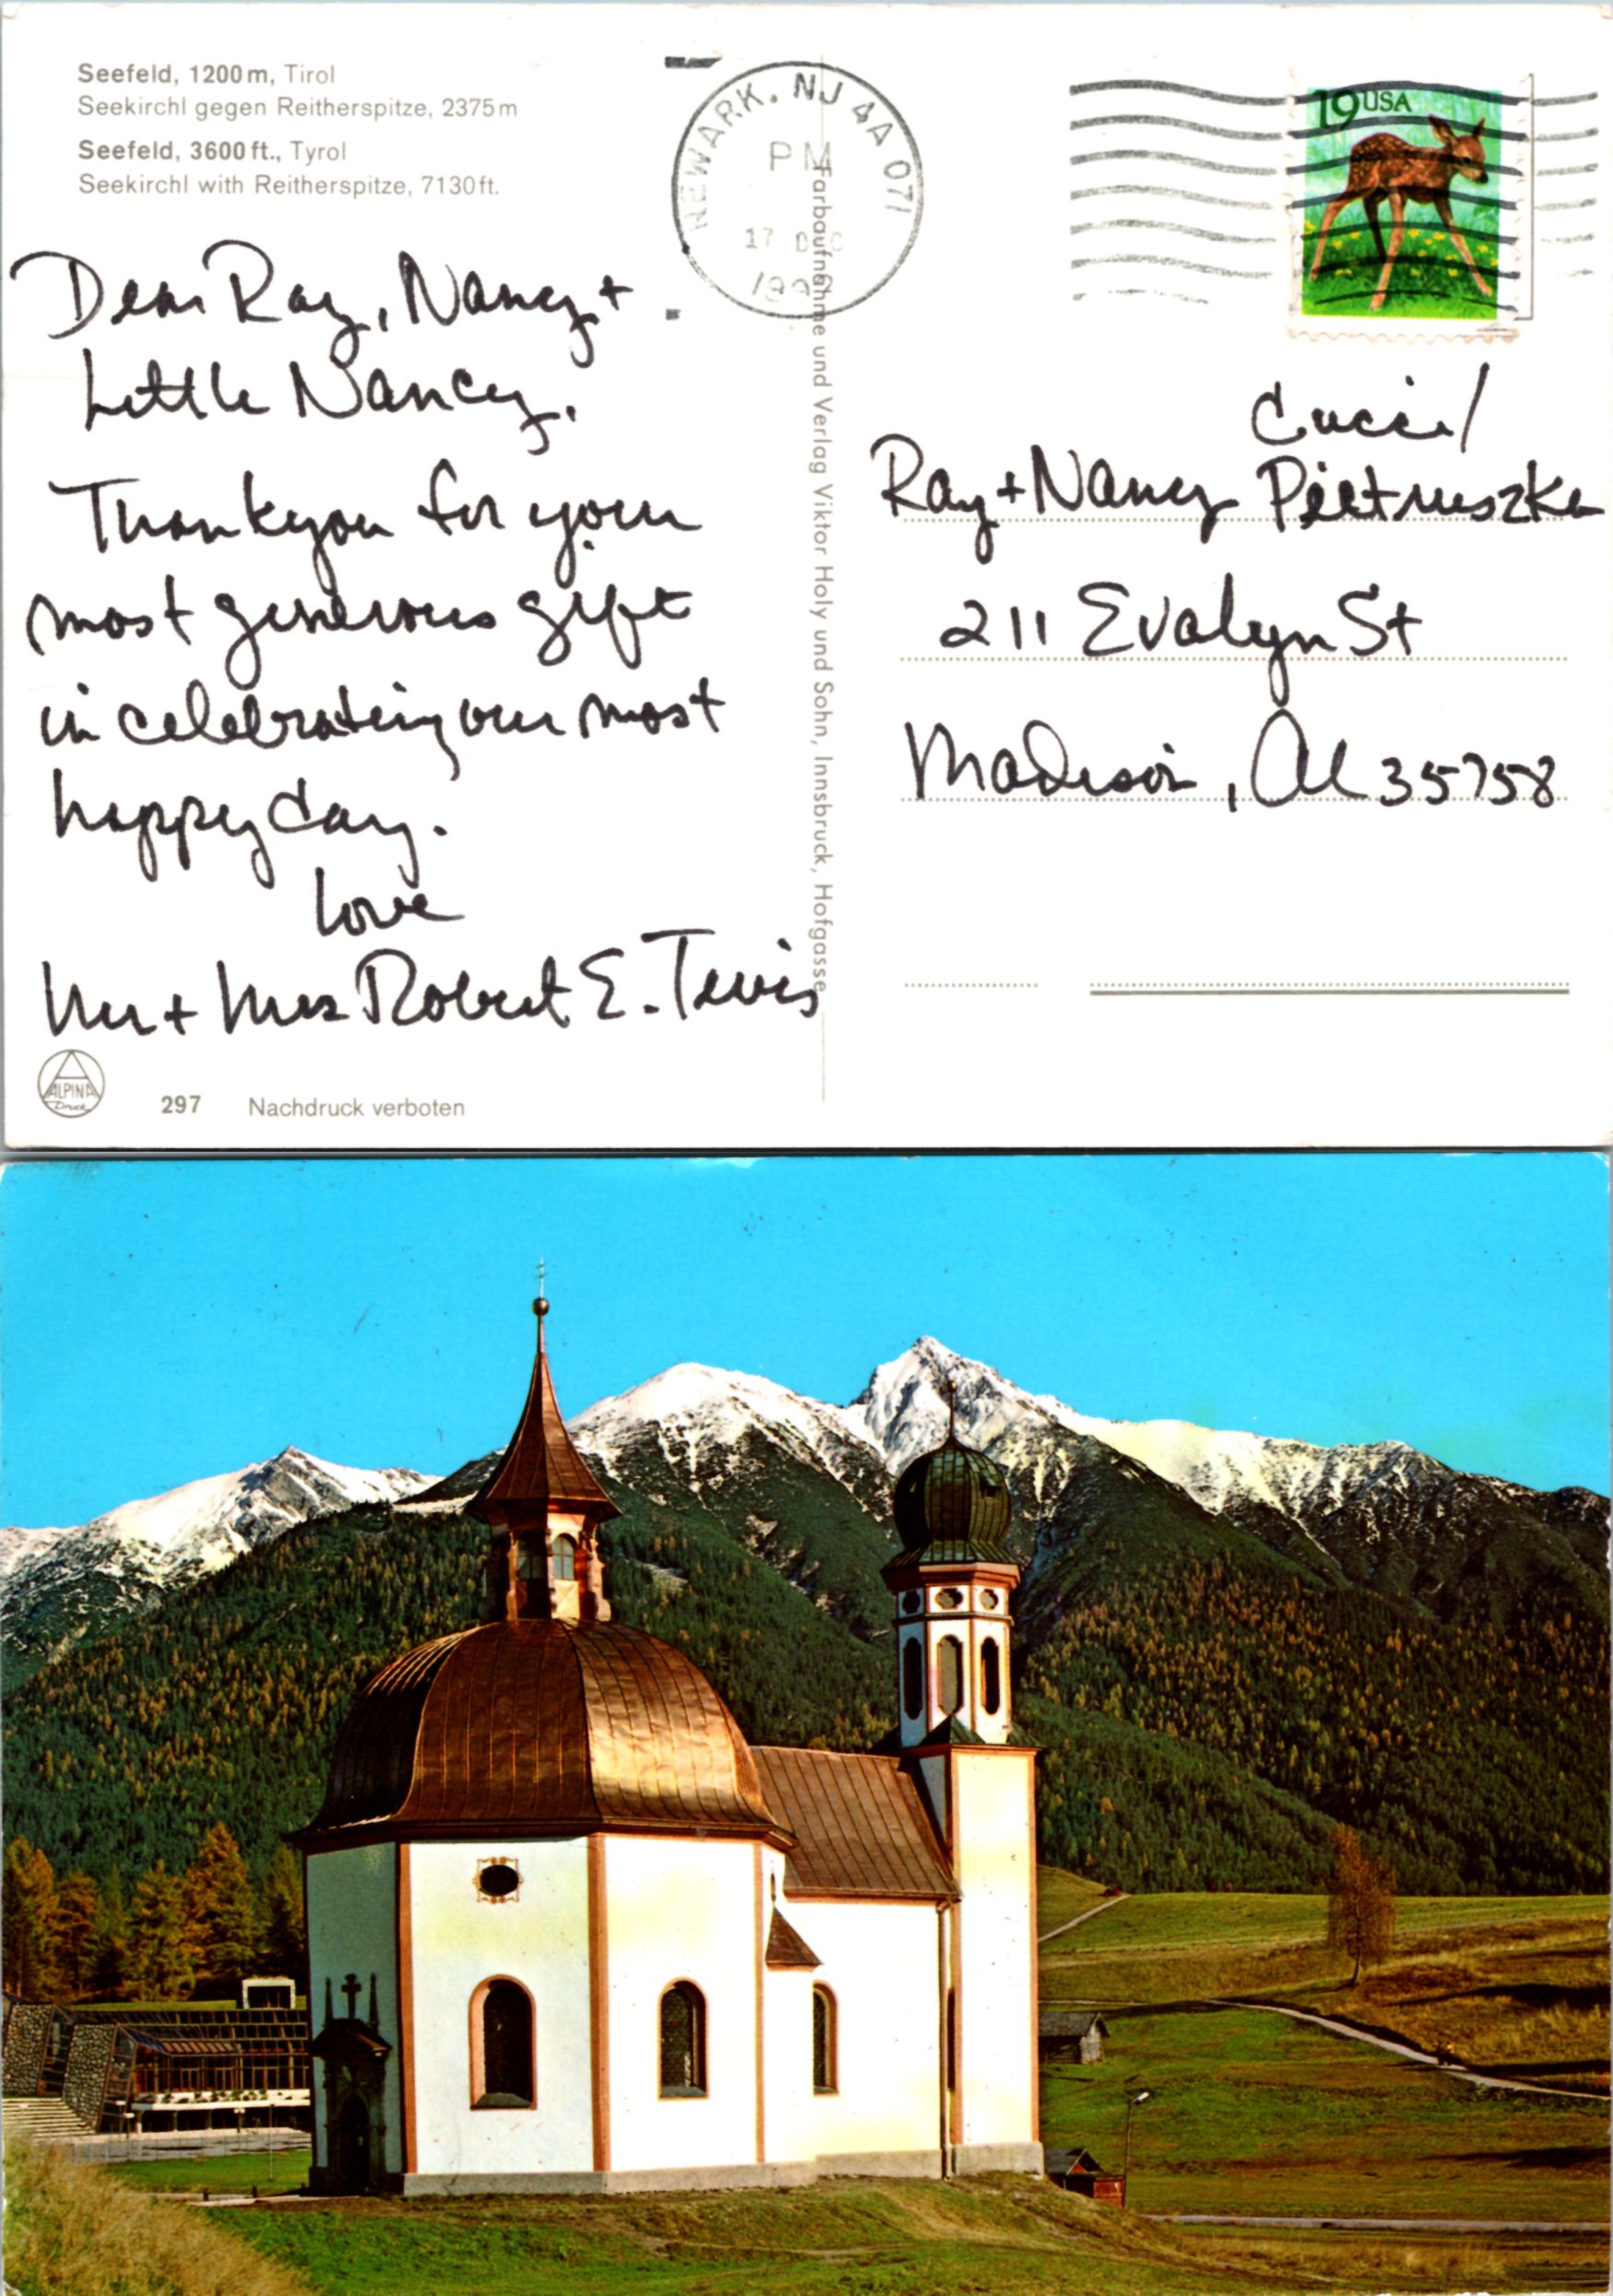 Seefeld, 1200 m, Tirol
Seekirchl gegen Reitherspitze, 2375 m
Seefeld, 3600 ft., Tyrol
Seekirchl with Reitherspitze, 7130 ft.
Dear Ray, Nancy +
Little Nancy,
Thankyou for your
most generous gift
in celebrating our most
happy day.
Love
Mr + Mrs Robert E. Tevis
ALPINA
Druck
297 Nachdruck verboten
Farbaufnahme und Verlag Viktor Holy und Sohn, Innsbruck, Hofgasse
NEWARK, NJ 4A 071
PM
17 DEC
1992
19 USA
Cucci/
Ray + Nancy Pietruszka
211 Evalyn St
Madison, Al 35758